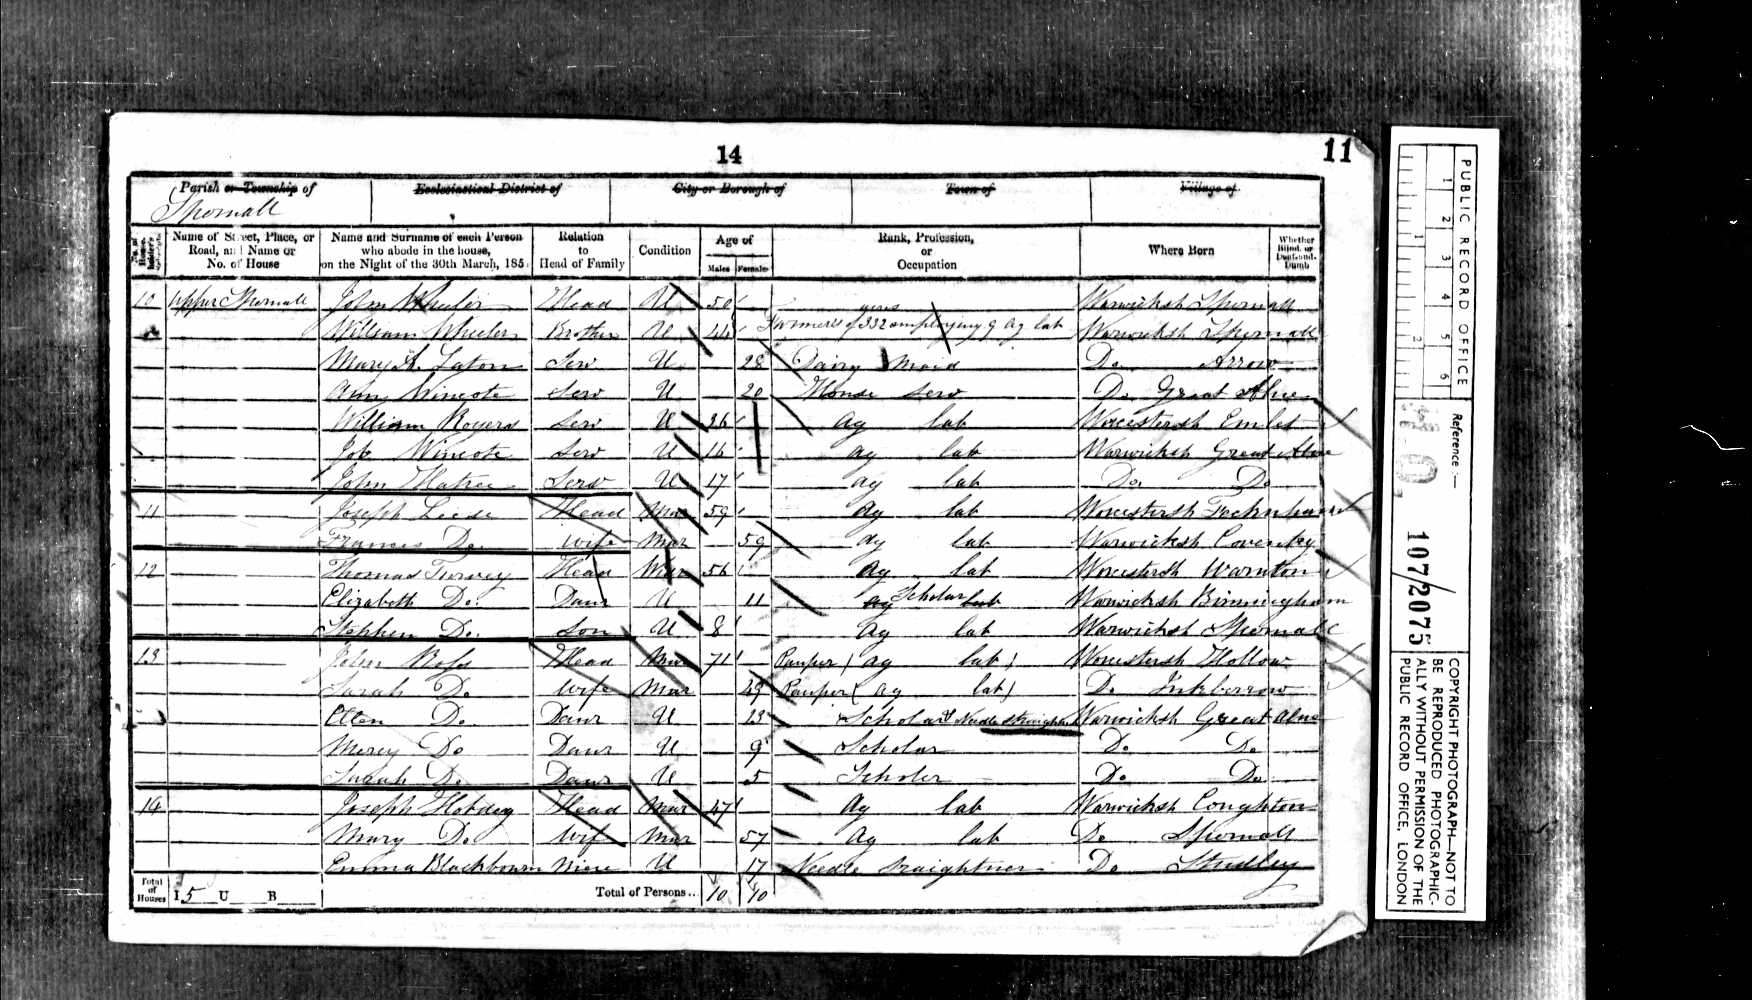 14
11
Parish or Township of
Ecclesiastical District of
City or Borough of
Town of
Village of
Spernall
No. of House-holder's
Name of Street, Place, or Road, and Name or No. of House
Name and Surname of each Person who abode in the house, on the Night of the 30th March, 185
Relation to Head of Family
Condition
Age of
Males
Females
Rank, Profession, or Occupation
Where Born
Whether Blind, or Deaf-and-Dumb
10 Upper Spernall John Wheeler Head U 50 Warwicksh Spernall
William Wheeler Brother U 44 Farmers of 332 acres employing 9 ag lab Warwicksh Spernall
Mary A. Eaton Serv U 28 Dairy Maid Do Arrow
Ann Wincote Serv U 20 House Serv Do Great Alne
William Rogers Serv U 26 Ag lab Worcestersh
Job Wincote Serv U 16 Ag lab Warwicksh Great Alne
John Serv U 17 Ag lab Do Do
11 Joseph Leese Head Mar 59 Ag lab Worcestersh
Frances Do Wife Mar 59 Ag lab Warwicksh Coventry
12 Thomas Turvey Head Mar 56 Ag lab Worcestersh
Elizabeth Do Daur U 11 Ag lab Scholar Warwicksh Birmingham
Stephen Do Son U 8 Ag lab Warwicksh Spernall
13 John Head Mar 71 Pauper (ag lab) Worcestersh Hollow
Sarah Do Wife Mar 49 Pauper (ag lab) Do Inkberrow
Ellen Do Daur U 13 Scholar Needle Warwicksh Great Alne
Mercy Do Daur U 9 Scholar Do Do
Sarah Do Daur U 5 Scholar Do Do
14 Joseph Hobday Head Mar 47 Ag lab Warwicksh Coughton
Mary Do Wife Mar 57 Ag lab Do Spernall
Emma Blackbourn Niece U 17 Needle straightner Do Studley
Total of Houses I 5 U B
Total of Persons... 10 10
PUBLIC RECORD OFFICE
1 2 3 4 5 6
1 2
Reference :—
107/2075
COPYRIGHT PHOTOGRAPH—NOT TO
BE REPRODUCED PHOTOGRAPHIC-
ALLY WITHOUT PERMISSION OF THE
PUBLIC RECORD OFFICE, LONDON